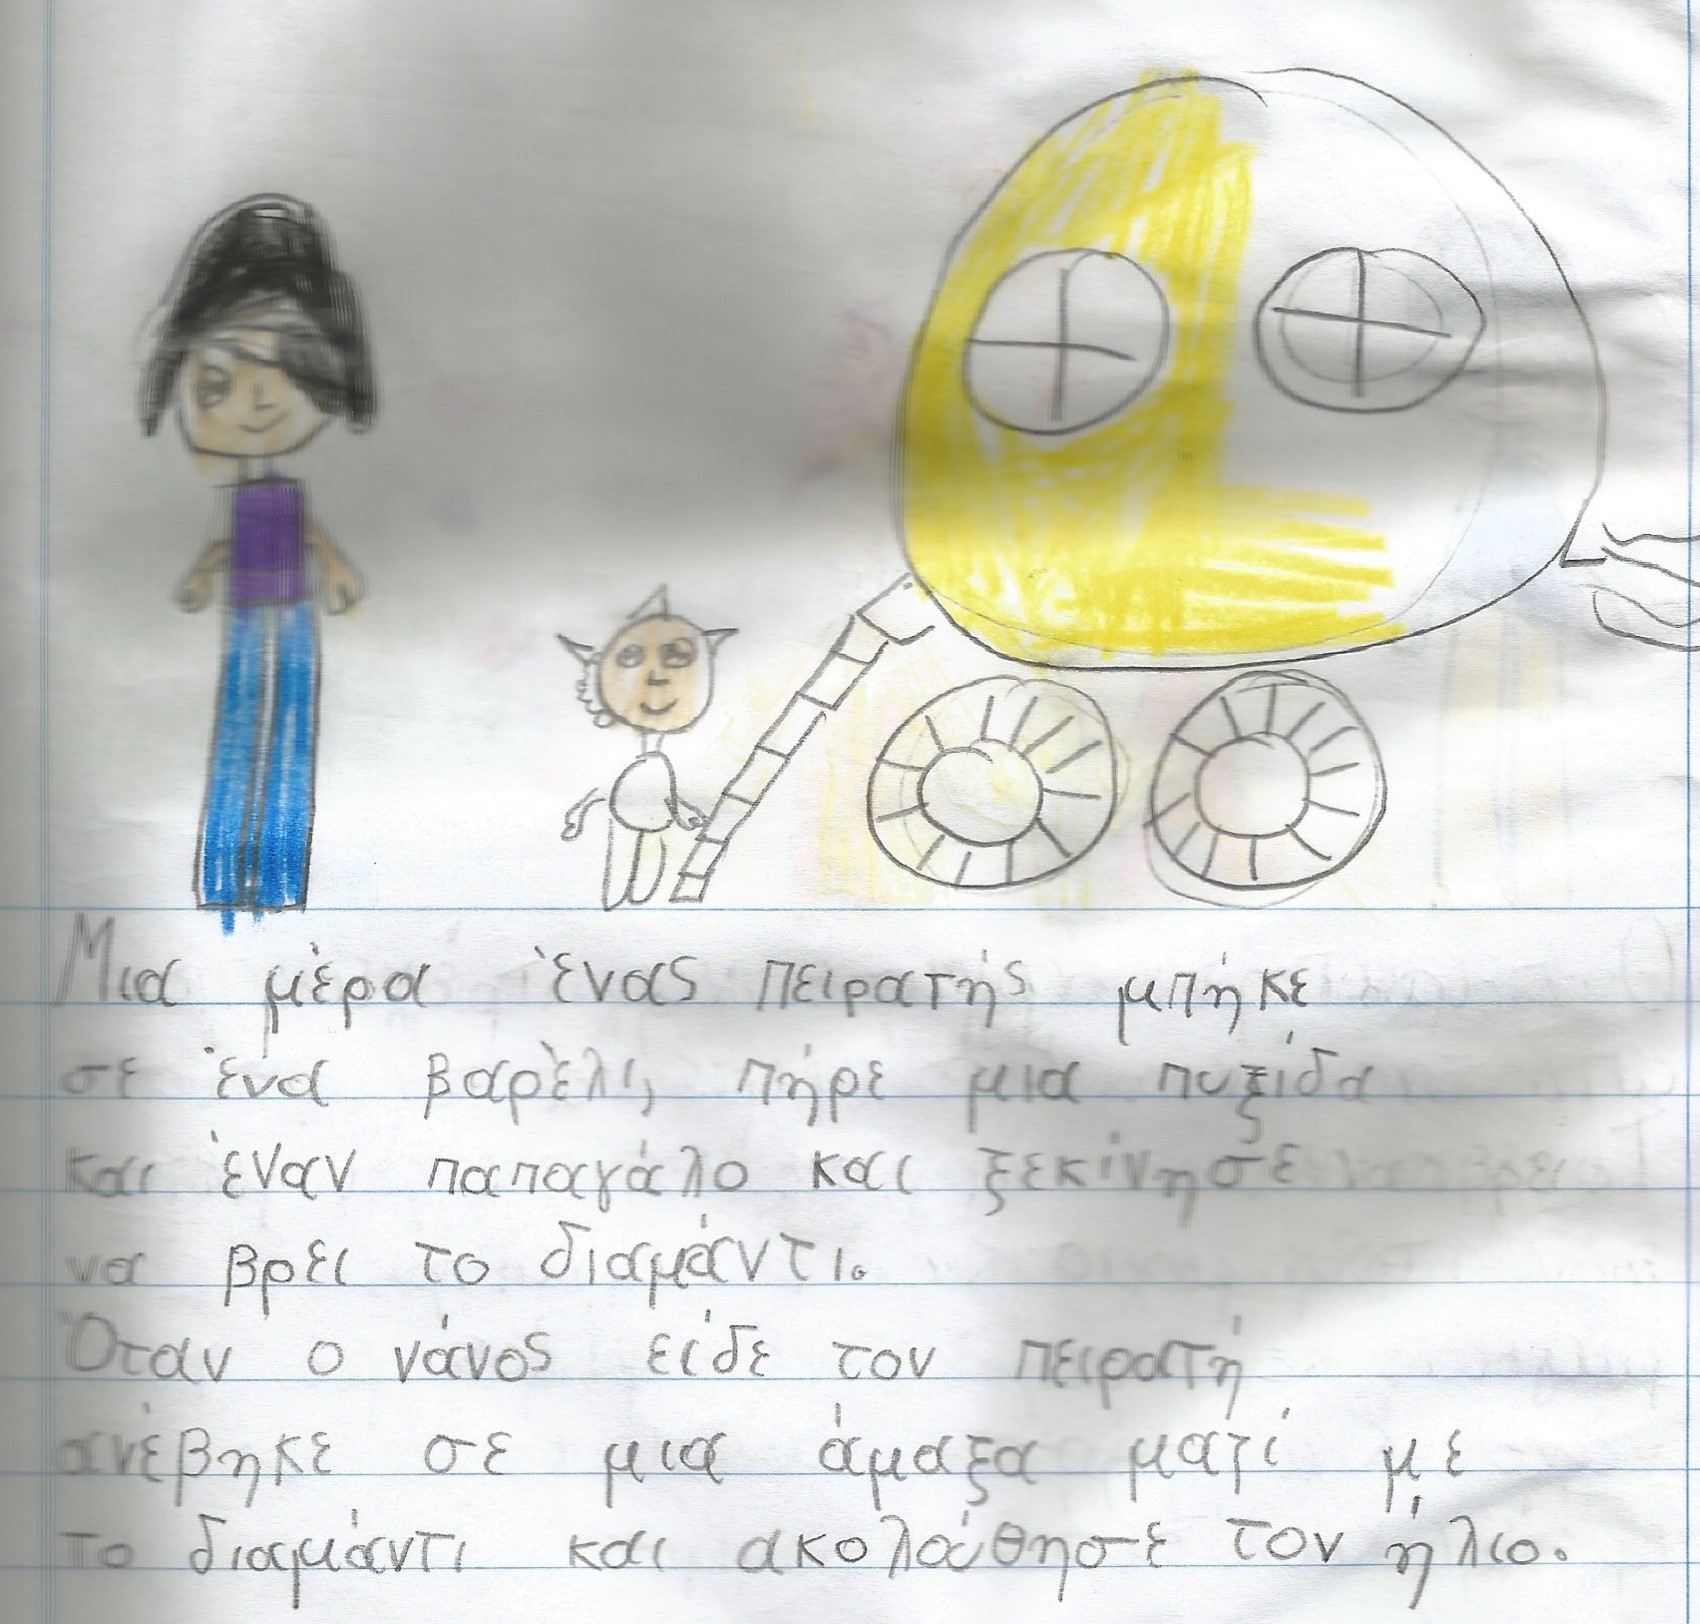 Μια μέρα ένας πειρατής μπήκε
σε ένα βαρέλι, πήρε μια πυξίδα
και έναν παπαγάλο και ξεκίνησε
να βρει το διαμάντι.
Όταν ο νάνος είδε τον πειρατή
ανέβηκε σε μια άμαξα ματί με
το διαμάντι και ακολούθησε τον ήλιο.